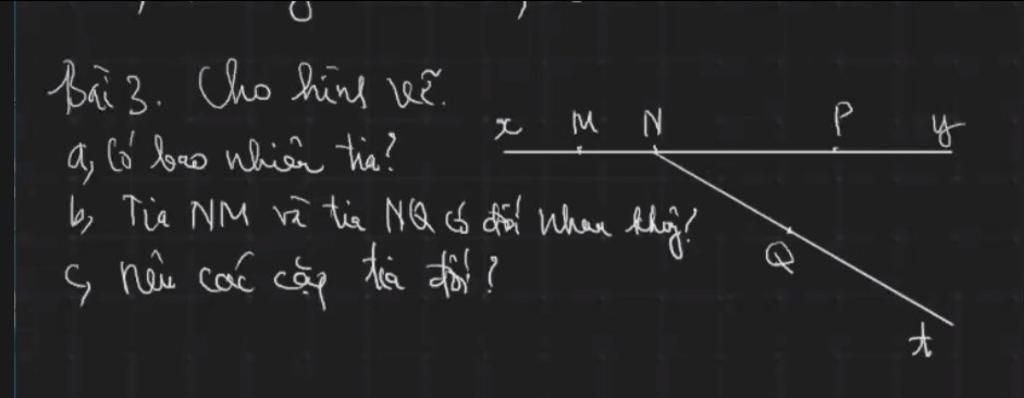 Bài 3. Cho hình vẽ.
a, Có bao nhiêu tia?
b, Tia NM và tia NQ có đối nhau không?
c, Nêu các cặp tia đối?
x M N P y
Q
t